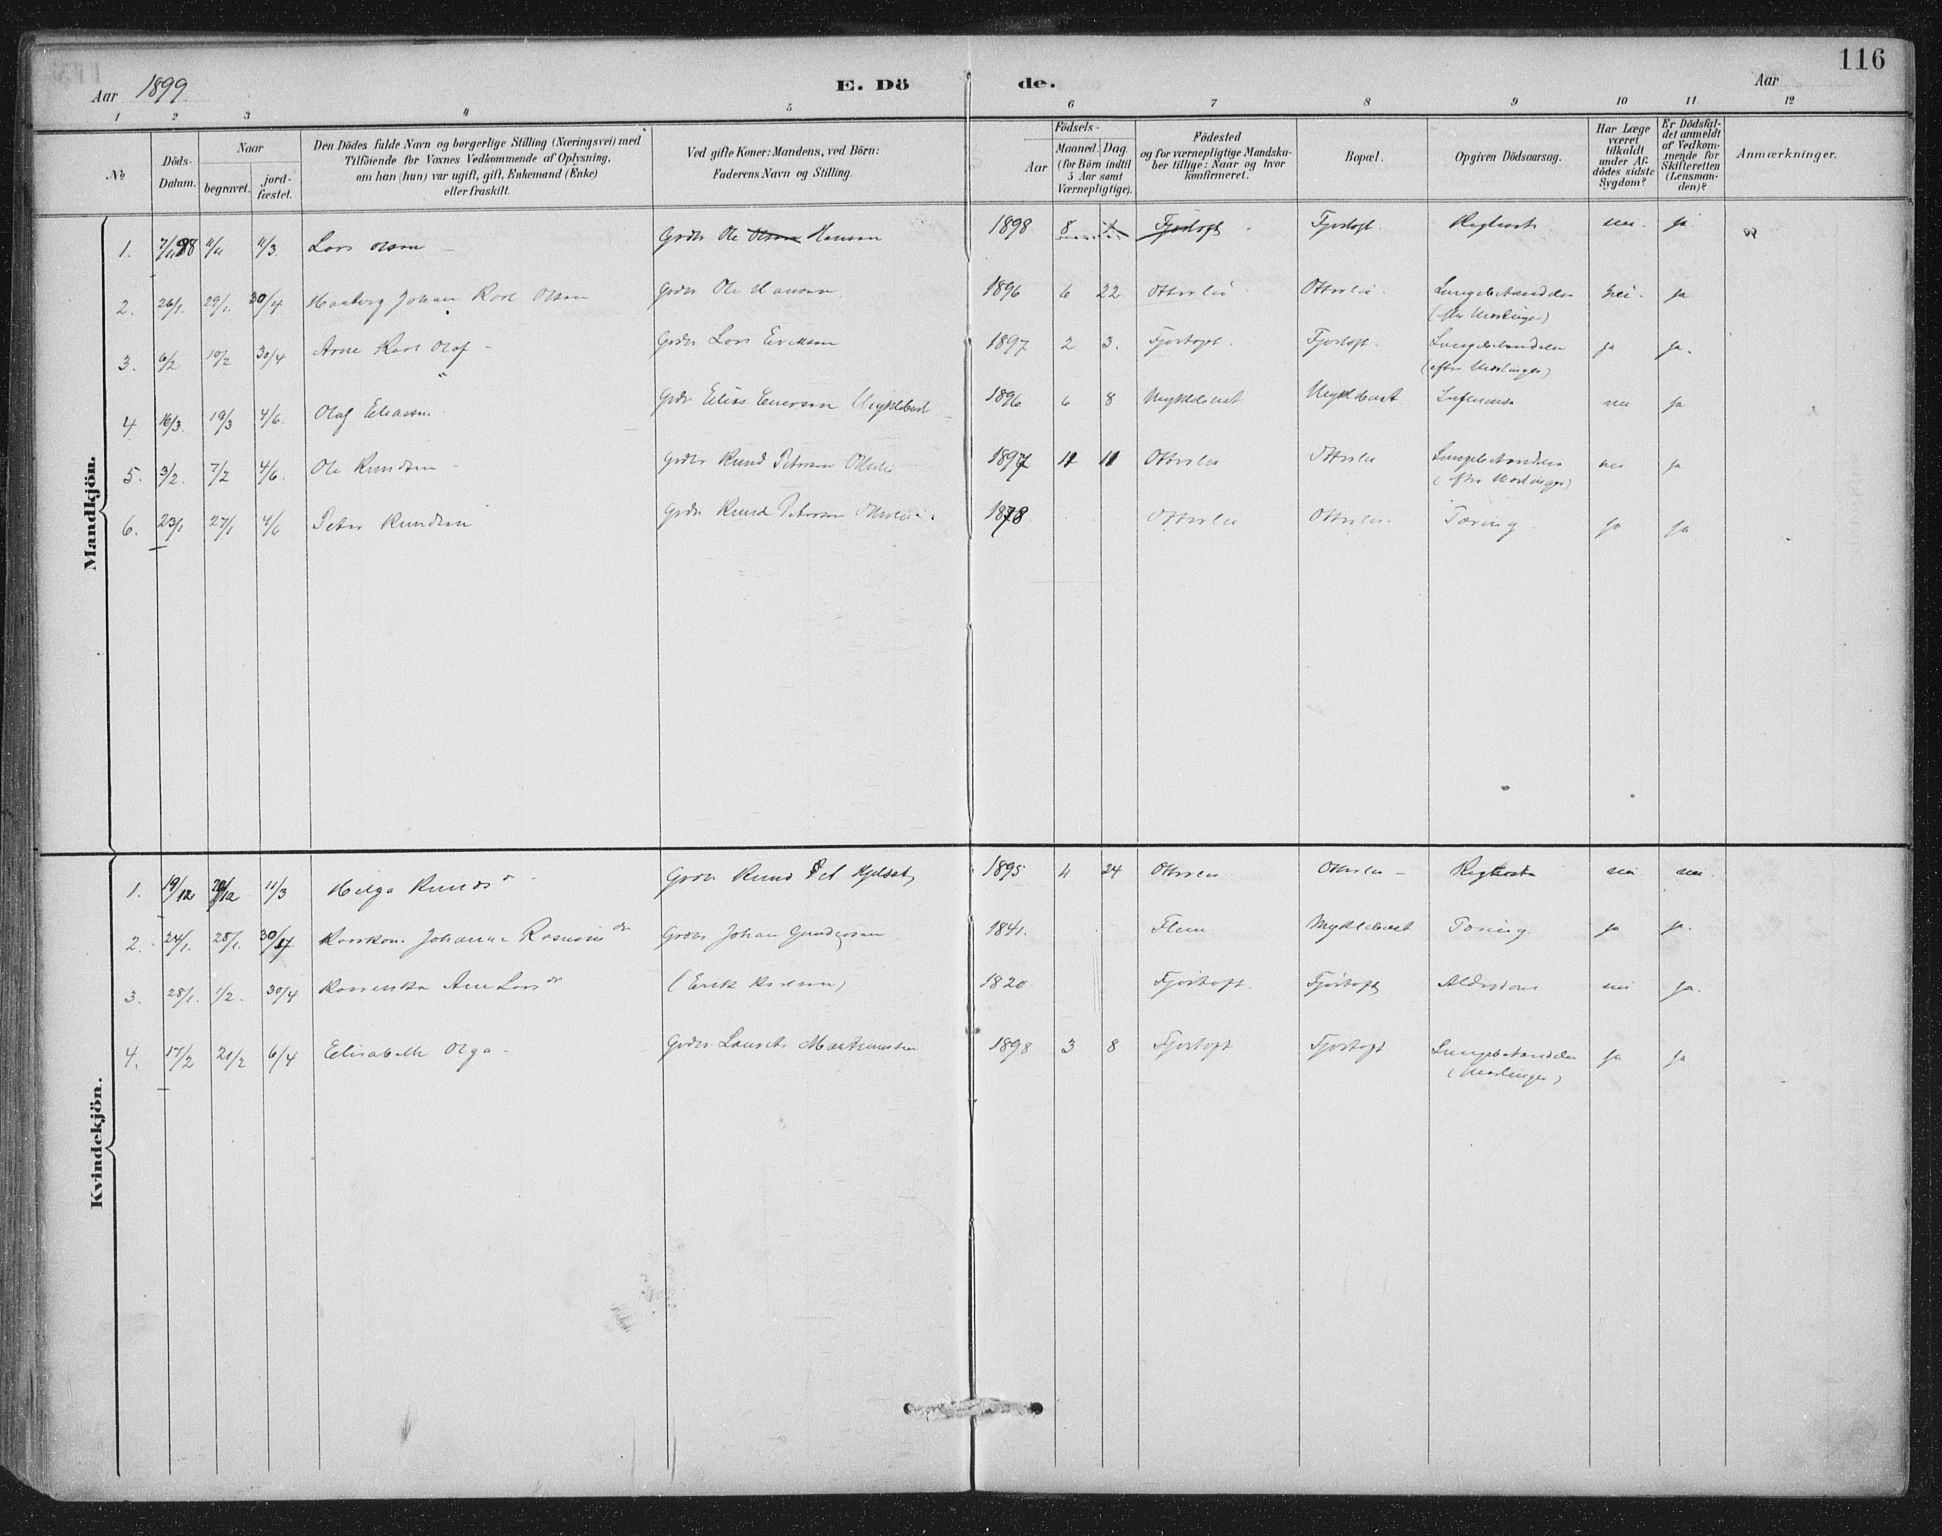 116
Aar 1899.
E. Döde.
Aar
1 2 3 4 5 6 7 8 9 10 11 12
No
Döds-Datum.
Naar
begravet.
jord-fæstet.
Den Dödes fulde Navn og borgerlige Stilling (Næringsvei) med
Tilföiende for Voxnes Vedkommende af Oplysning,
om han (hun) var ugift, gift, Enkemand (Enke)
eller fraskilt.
Ved gifte Koner: Mandens, ved Börn:
Faderens Navn og Stilling.
Födsels-
Aar
Maaned. Dag.
(for Börn indtil
5 Aar samt
Værnepligtige).
Födested
og for værnepligtige Mandska-
ber tillige: Naar og hvor
konfirmeret.
Bopæl.
Opgiven Dödsaarsag.
Har Læge
været
tilkaldt
under Af-
dödes sidste
Sygdom?
Er Dödsfal-
det anmeldt
af Vedkom-
mende for
Skifteretten
(Lensman-
den)?
Anmærkninger.
Mandkjön.
1. Lars Olsen Gdbr Ole Olsen Hansen 1898 8 Fjørtoft Fjørtoft Kighoste nei. ja
2. 26/1. 29/1. 30/4 Johan Karl Olsen Gdbr Ole Hansen 1896 6 22 Otterlei Otterlei. Lungebetændelse nei. ja
(efter Mæslinger)
3. 6/2 10/2 30/4 Arne Karl Olaf Gdbr Lars Eriksen 1897 2 3. Fjørtoft. Fjørtoft. Lungebetændelse ja ja.
(efter Mæslinger)
4. 16/3. 19/3 4/6. Olaf Eliassen Gdbr Elias Myklebust 1896 6 8 Myklebust Myklebust Influensa nei ja
5. 3/2. 7/2 4/6. Ole Knudsen Gdbr Knud Petersen Otterlei 1897 11 11 Otterlei Otterlei Lungebetændelse nei ja
(efter Mæslinger)
6. 23/1 27/1 4/6 Peter Knudsen Gdbr Knud Petersen Otterlei. 1878 Otterlei Otterlei Tæring. ja ja
Kvindekjön.
1. 19/12 11/3 Helga Knudsdr Gdbr Knud 1895 4 24 Otterlei Otterlei Kighoste nei nei.
2. 24/1. 28/1. 30/4 Johanne Rasmusdr Gdbr Johan Gundersen 1841. Flem Myklebust Tæring. ja ja.
3. 28/1. 1/2. 30/4 Ane Larsdr (Erik) 1820 Fjørtoft. Fjørtoft Alderdom nei ja.
4. 17/2 21/2 6/4 Elisabeth Olga Gdbr Laurits Martinussen 1898 3 8 Fjørtoft Fjørtoft Lungebetændelse ja ja
(Mæslinger)